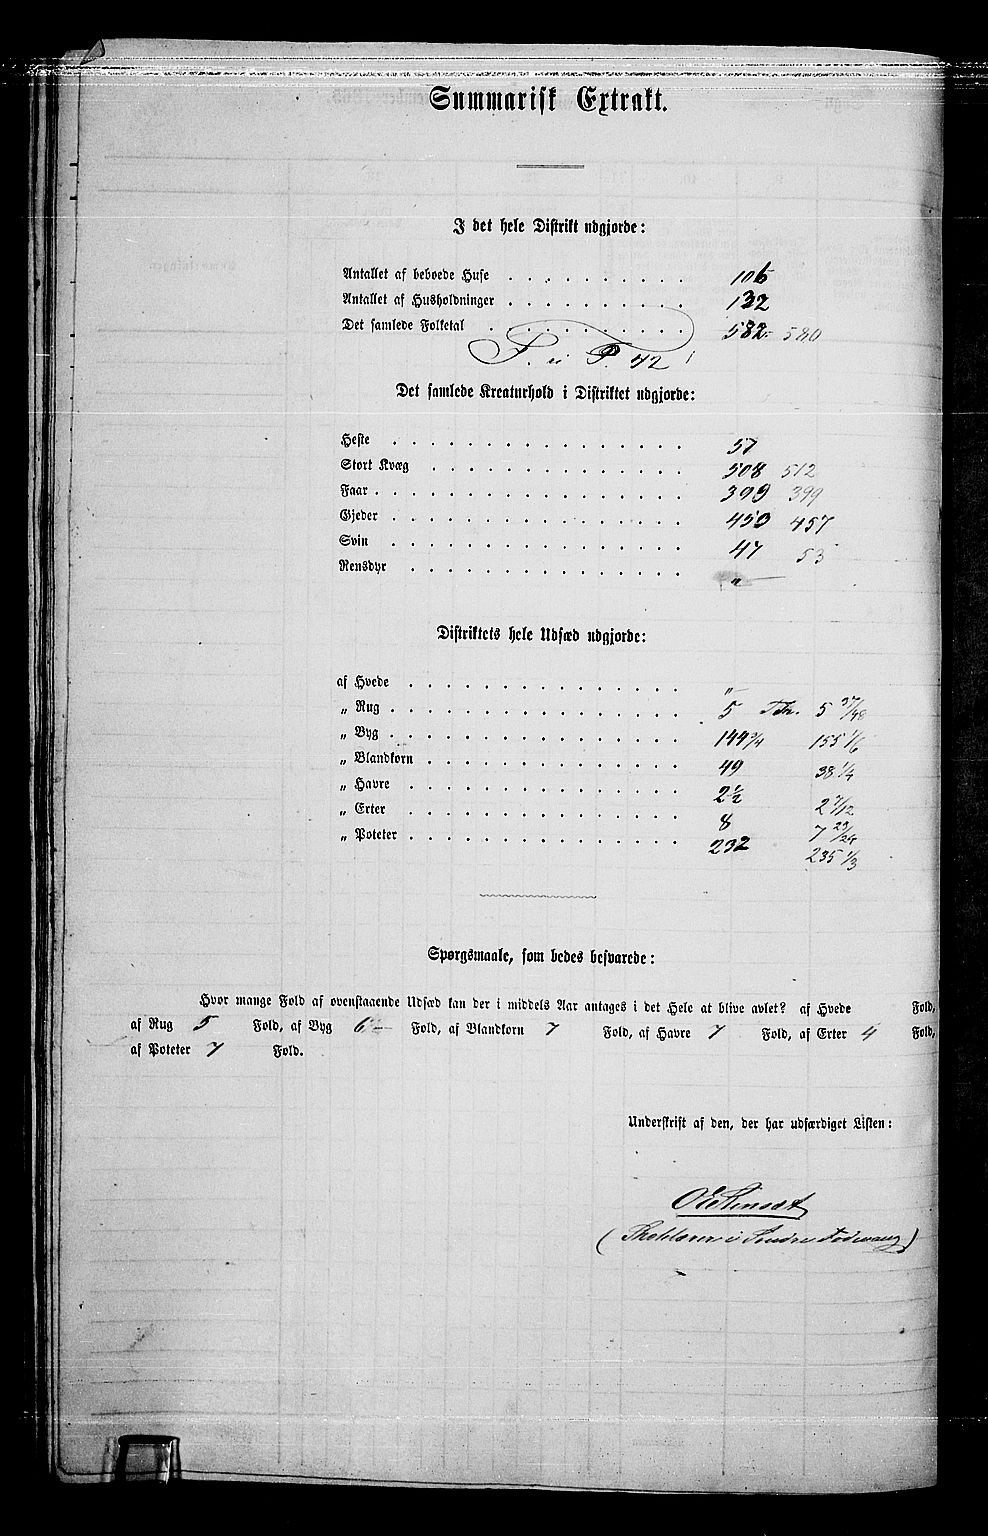 Summarisk Extrakt.
I det hele Distrikt udgjorde:
Antallet af beboede Huse . . . . . . . . . . 106
Antallet af Husholdninger . . . . . . . . . . 132
Det samlede Folketal . . . . . . . . . . 582 580
42
Det samlede Kreaturhold i Distriktet udgjorde:
Heste . . . . . . . . . . . . . . . . 57
Stort Kvæg . . . . . . . . . . . . . . 508 512
Faar . . . . . . . . . . . . . . . . . 399 399
Gjeder . . . . . . . . . . . . . . . . 450 457
Svin . . . . . . . . . . . . . . . . 47 53
Rensdyr . . . . . . . . . . . . . . . „
Distriktets hele Udsæd udgjorde:
af Hvede . . . . . . . . . . . . . . . „
„ Rug . . . . . . . . . . . . . . . . 5 Tdr. 5 37/48
„ Byg . . . . . . . . . . . . . . . . 144 3/4 155 1/6
„ Blandkorn . . . . . . . . . . . . . . 49 38 1/4
„ Havre . . . . . . . . . . . . . . . 2 1/2 2 7/12
„ Erter . . . . . . . . . . . . . . . 8 7 23/24
„ Poteter . . . . . . . . . . . . . . . 232 235 1/3
Spørgsmaale, som bedes besvarede:
Hvor mange Fold af ovenstaaende Udsæd kan der i middels Aar antages i det Hele at blive avlet? af Hvede Fold,
af Rug 5 Fold, af Byg 6 Fold, af Blandkorn 7 Fold, af Havre 7 Fold, af Erter 4 Fold,
af Poteter 7 Fold.
Underskrift af den, der har udfærdiget Listen: